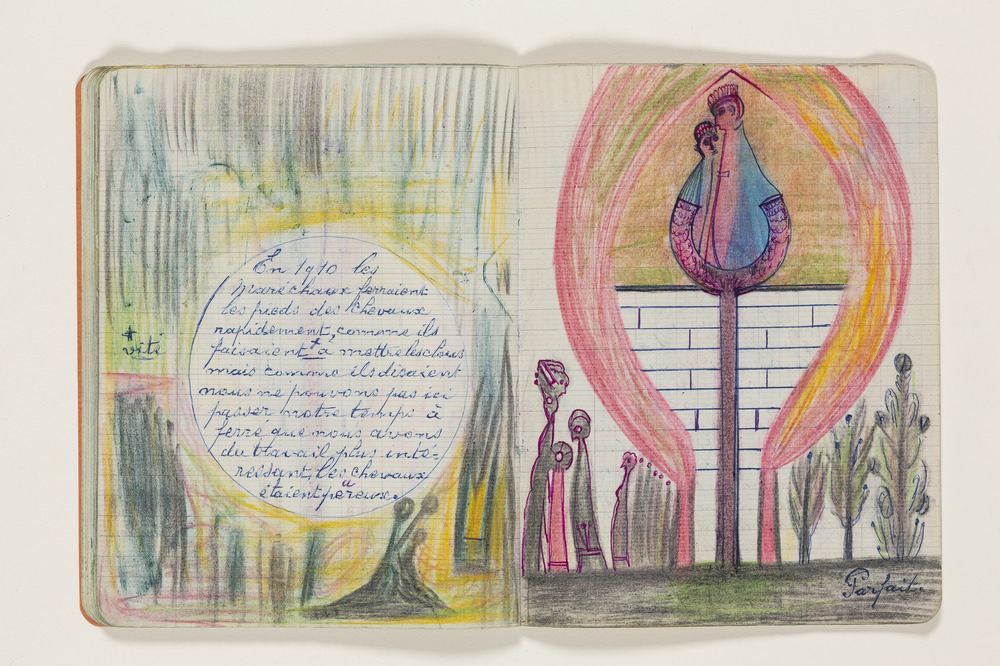 En 1910 les
maréchaux ferraient
les pieds des chevaux
rapidement, comme ils
faisaient + à mettre les clous
+ vite
mais comme ils disaient
nous ne pouvons pas ici
passer notre temps à
ferre que nous avons
du travail plus inte-
ressant, les chevaux
étaient péreux.
Parfait.